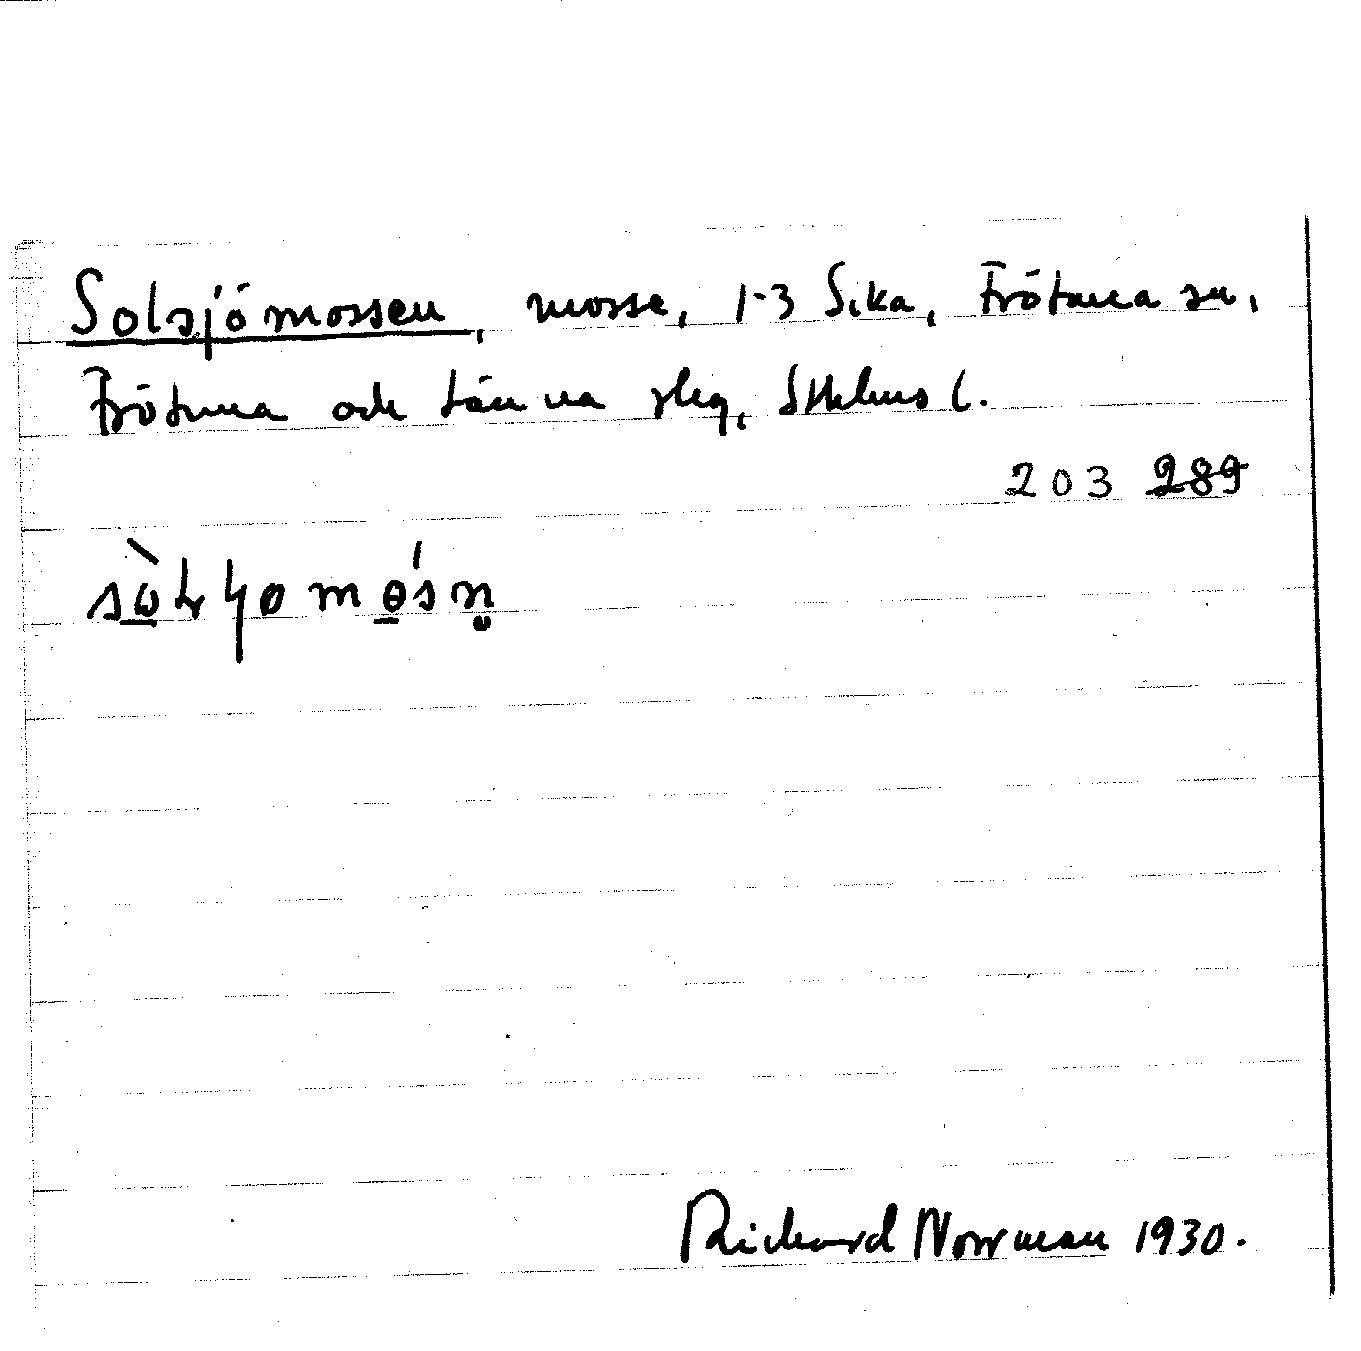 Solsjömossen, mosse, 1-3 Sika, Frötuna sn,
Frötuna och Länna slg, Sthlms l.
203 289
Richard Norrman 1930.